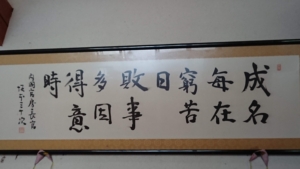 成名
每在
窮苦
日
敗事
多因
得意
時